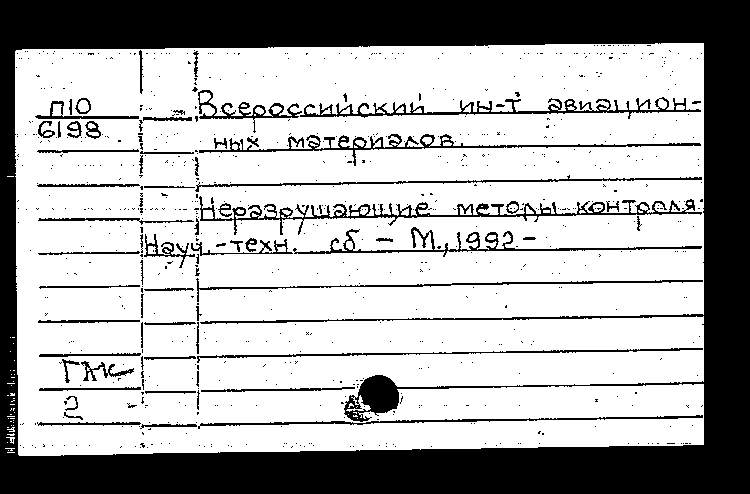 П10
6198
Всероссийский ин-т авиацион-
ных материалов.
Неразрушающие методы контроля:
Науч.-техн. сб. - М., 1992 -
ГАК
2